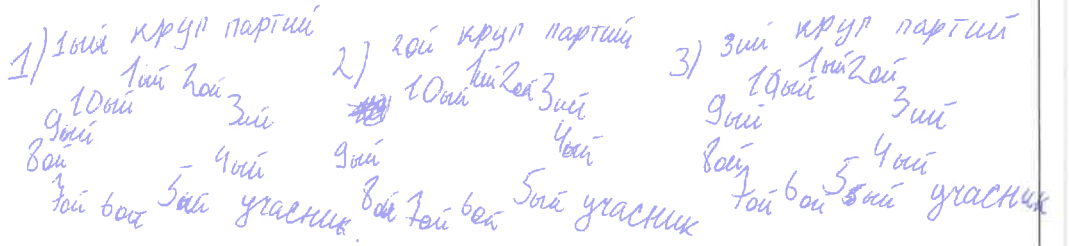 1) 1ый круг партий
1ый 2ой
10ый 3ий
9ый
8ой 4ый
7ой 6ой 5ый учасник.
2) 2ой круг партий
1ый 2ой
10ый 3ий
9ый 4ый
8ой 7ой 6ой 5ый учасник
3) 3ий круг партий
1ый 2ой
10ый
9ый 3ий
8ой 4ый
7ой 6ой 5ый учасник